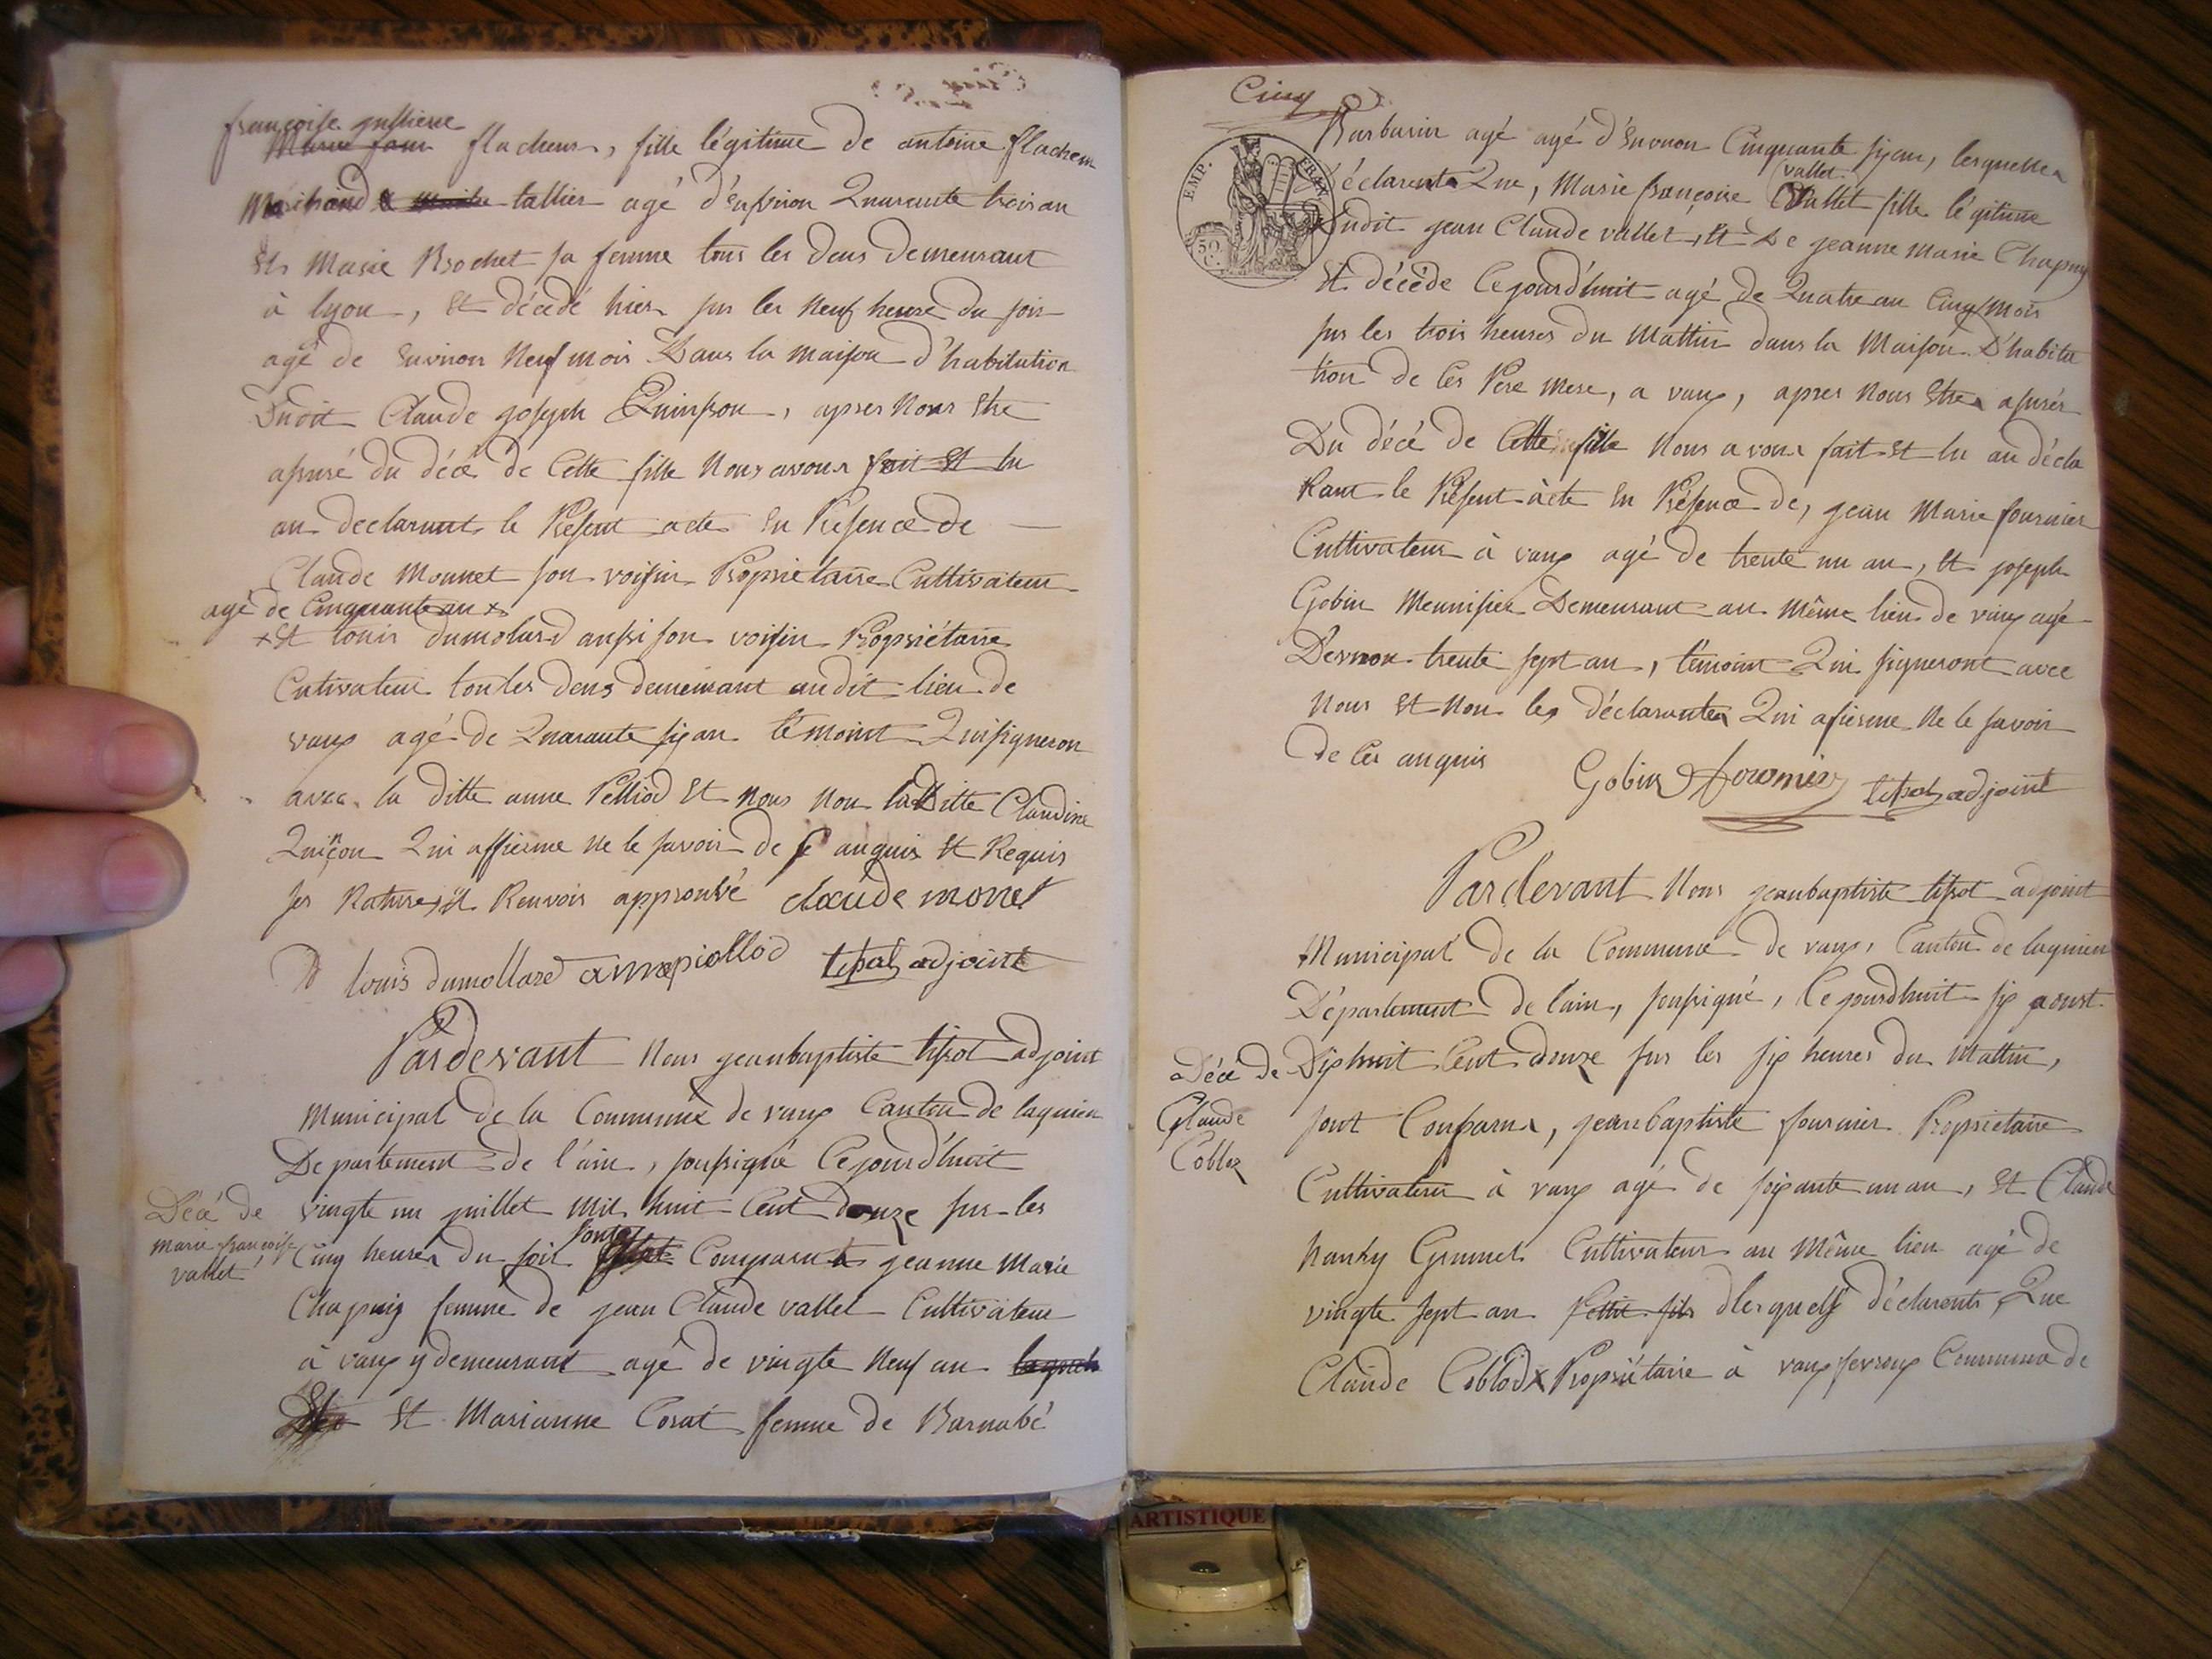 françoise jullienne
Marie fran flacheur, fille légitime de antoine flacheur
Marchand & tallier agé d'environ Quarante trois an
Et Marie Brochet sa femme tous les deus demeurant
à lyon, Et décédé hier sur les neuf heure du soir
agé de environ Neuf mois Dans la maison d'habitation
Dudit Claude joseph Quinson, apres Nous Etre
assuré du décé de Cette fille Nous avons fait Et lu
au declarant le Présent acte En Présence de
Claude Monnet son voisin Propriétaire Cultivateur
agé de Cinquante an x
x Et louis dumolard aussi son voisin Propriétaire
Cutivateur tou les deus demeurant audit lieu de
vaux agé de Quarante six an témoint Qui signeron
avec la ditte anne Pelliod Et Nous Non la Ditte Claudine
Quinçon Qui affierme Ne le savoir de se anquis Et Requis
ses Rature et Renvois approuvé claude monet
louis dumollard anne piollod tissot adjoint
Pardevant Nous jeanbaptiste tissot adjoint
Municipal de la Commune de vaux Canton de lagnieu
Departement de l'ain, soussigné Cejourd'huit
Décé de
marie françoise
vallet
vingte un juillet Mil huit Cent douze sur les
Cinq heures du soir sont Comparut jeanne Marie
Chapuis femme de jean Claude vallet Cultivateur
à vaux y demeurant agé de vingte Neuf an
Et Marianne Corat femme de Barnabé
Cinq
EMP. FRAN.
50 C.
Barbarin agé agé d'Environ Cinquante six an, lesquelles
vallet
déclarente Que, Marie françoise Vallet fille légitime
Dudit jean Claude vallet, Et De jeanne marie Chapuy
Et décéde Cejourd'huit agé de Quatre an Cinq mois
sur les trois heures du Mattin dans la Maison D'habita
tion de Ces Pere Mere, a vaux, apres Nous Etre asurés
Du décé de Cette fille Nous avons fait Et lu au décla
Rant le Présent àcte En Présence de, jean Marie fournier
Cultivateur à vaux agé de trente un an, Et joseph
Gobin Meunisier Demeurant au même lieu de vaux agé
D'environ trente sept an, témoint Qui signeront avec
Nous Et Non les déclarantes Qui afierme Ne le savoir
de Ces anquis
Gobin fournier tissot adjoint
Pardevant Nous jeanbaptiste tissot adjoint
Municipal de la Commune de vaux, Canton de lagnieu
Département de l'ain, soussigné, Cejourdhuit six aoust
Décé de
Claude
Coblod
Dixhuit Cent douze sur les six heures du Mattin,
sont Comparus, jeanbaptiste fournier Propriétaire
Cultivateur à vaux agé de soixante un an, Et Claude
hanky Grumet Cultivateur au Même lieu agé de
vingte sept an Petit fils lesquels déclarents, Que
Claude Coblod x Propriétaire à vaux fevroux Commune de